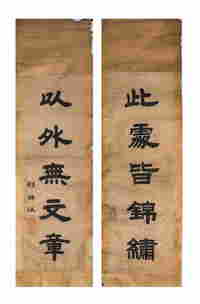 此處皆錦繡
以外無文章